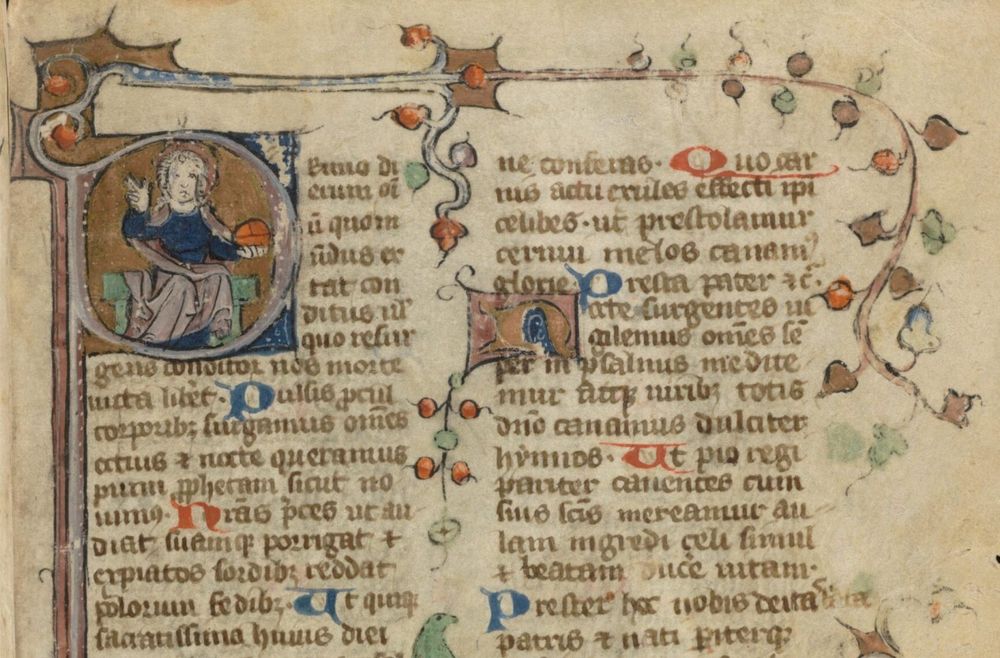 Primo di
erum om̄
ū quo m
ūdus ex
tat con
ditus ul̄
quo resur
gens conditor nos morte
uicta lib̄et. Pulsis ꝓcul
torporibꝫ surgamus om̄es
ocius ⁊ nocte queramus
pium ꝓphetam sicut no
uimꝰ. Nr̄as p̄ces ut au
diat suamqꝫ porrigat ⁊
expiatos sordibꝫ reddat
polorum sedibꝫ. Ut quiqꝫ
sacratissima huius diei
ne conferas. Quo car
nis actu exules effecti ipi
celibes. ut prestolamur
cernui melos canamꝰ
glorie. Presta pater ⁊c̄.
Nocte surgentes ui
gilemus om̄es sē
per in psalmis medite
mur atqꝫ uiribꝫ totis
dn̄o canamus dulciter
hymnos. Ut pio regi
pariter canentes cum
suis sc̄is mereamur au
lam ingredi celi simul
⁊ beatam ducē uitam.
Prestet hoc nobis deitas
patris ⁊ nati ꝑiterqꝫ